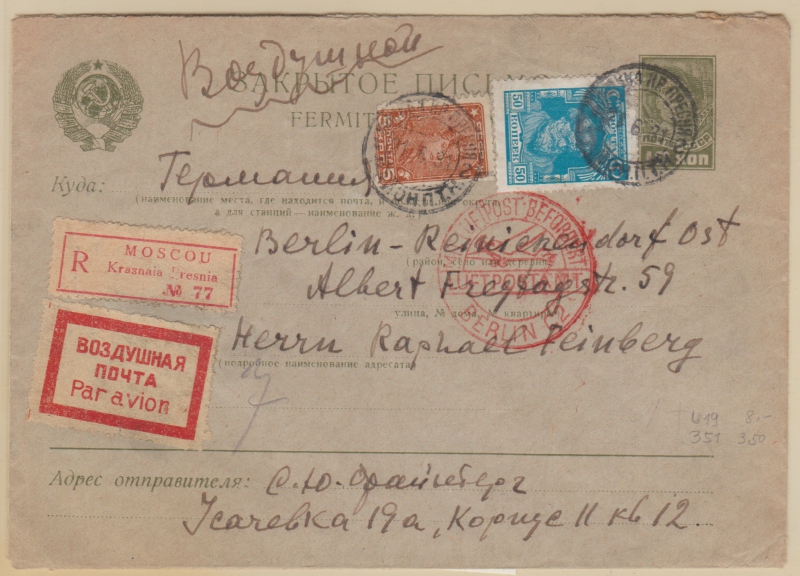 Воздушной
ЗАКРЫТОЕ ПИСЬМО
FERMÉ
50 КОПЕЕК 50
5 5
КОП
Куда:
Германия
(наименование места, где находится почта, и округа,
а для станций—наименование ж. д.)
R MOSCOU
Krasnaia Presnia
№ 77
Berlin-Reinickendorf Ost
(район, село или деревня)
MIT LUFTPOST BEFÖRDERT
LUFTPOSTAMT
BERLIN C2
Albert Freytagstr. 59
улица, № дома, квартиры
Herrn Raphael Feinberg
(подробное наименование адресата)
ВОЗДУШНАЯ
ПОЧТА
Par avion
419 8.-
351 3.50
Адрес отправителя:
С.Ю. Файнберг
Усачевка 19а, Корпус II кв 12